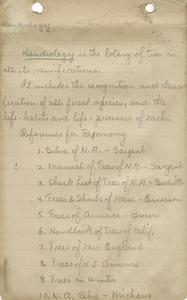 Dendrology
Dendrology is the botany of trees in
all its ramifications.
It includes the recognition and classi-
fication of all forest species, and the
life-habits and life-processes of each.
References for Taxonomy
1. Silva of N.A. - Sargent
2. Manual of Trees of N.A. - Sargent
3. Check List of Trees of N.A. - Sudworth
4. Trees & Shrubs of Mass. - Emerson
5. Trees of America - Brown
6. Handbook of Trees of Calif.
7. Trees of New England
8. Trees of N.E. America
9. Trees in Winter
10. N.A. Silva - Michaux